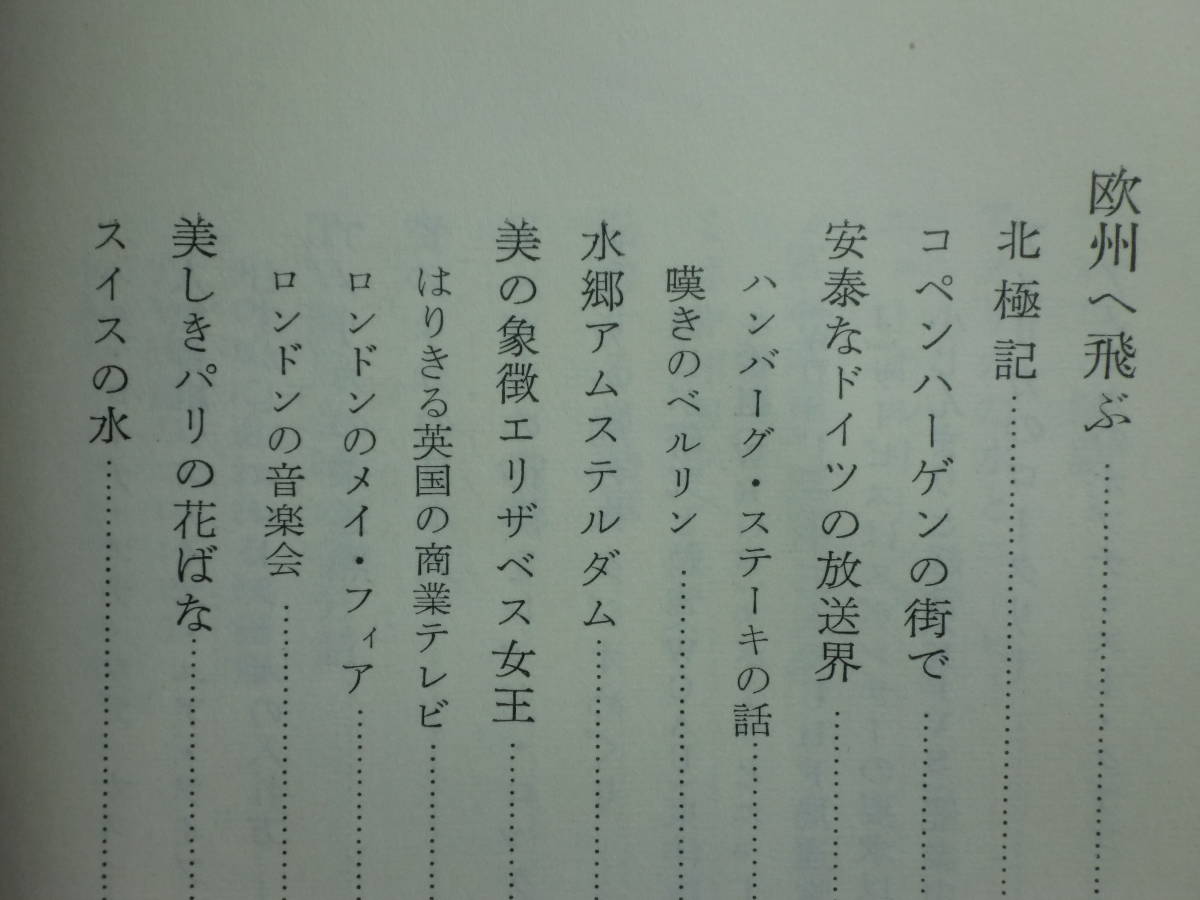 欧州へ飛ぶ…………………………
北極記…………………………
コペンハーゲンの街で……………
安泰なドイツの放送界……………
ハンバーグ・ステーキの話…………
嘆きのベルリン…………………
水郷アムステルダム………………
美の象徴エリザベス女王…………
はりきる英国の商業テレビ…………
ロンドンのメイ・フィア……………
ロンドンの音楽会…………………
美しきパリの花ばな………………
スイスの水…………………………